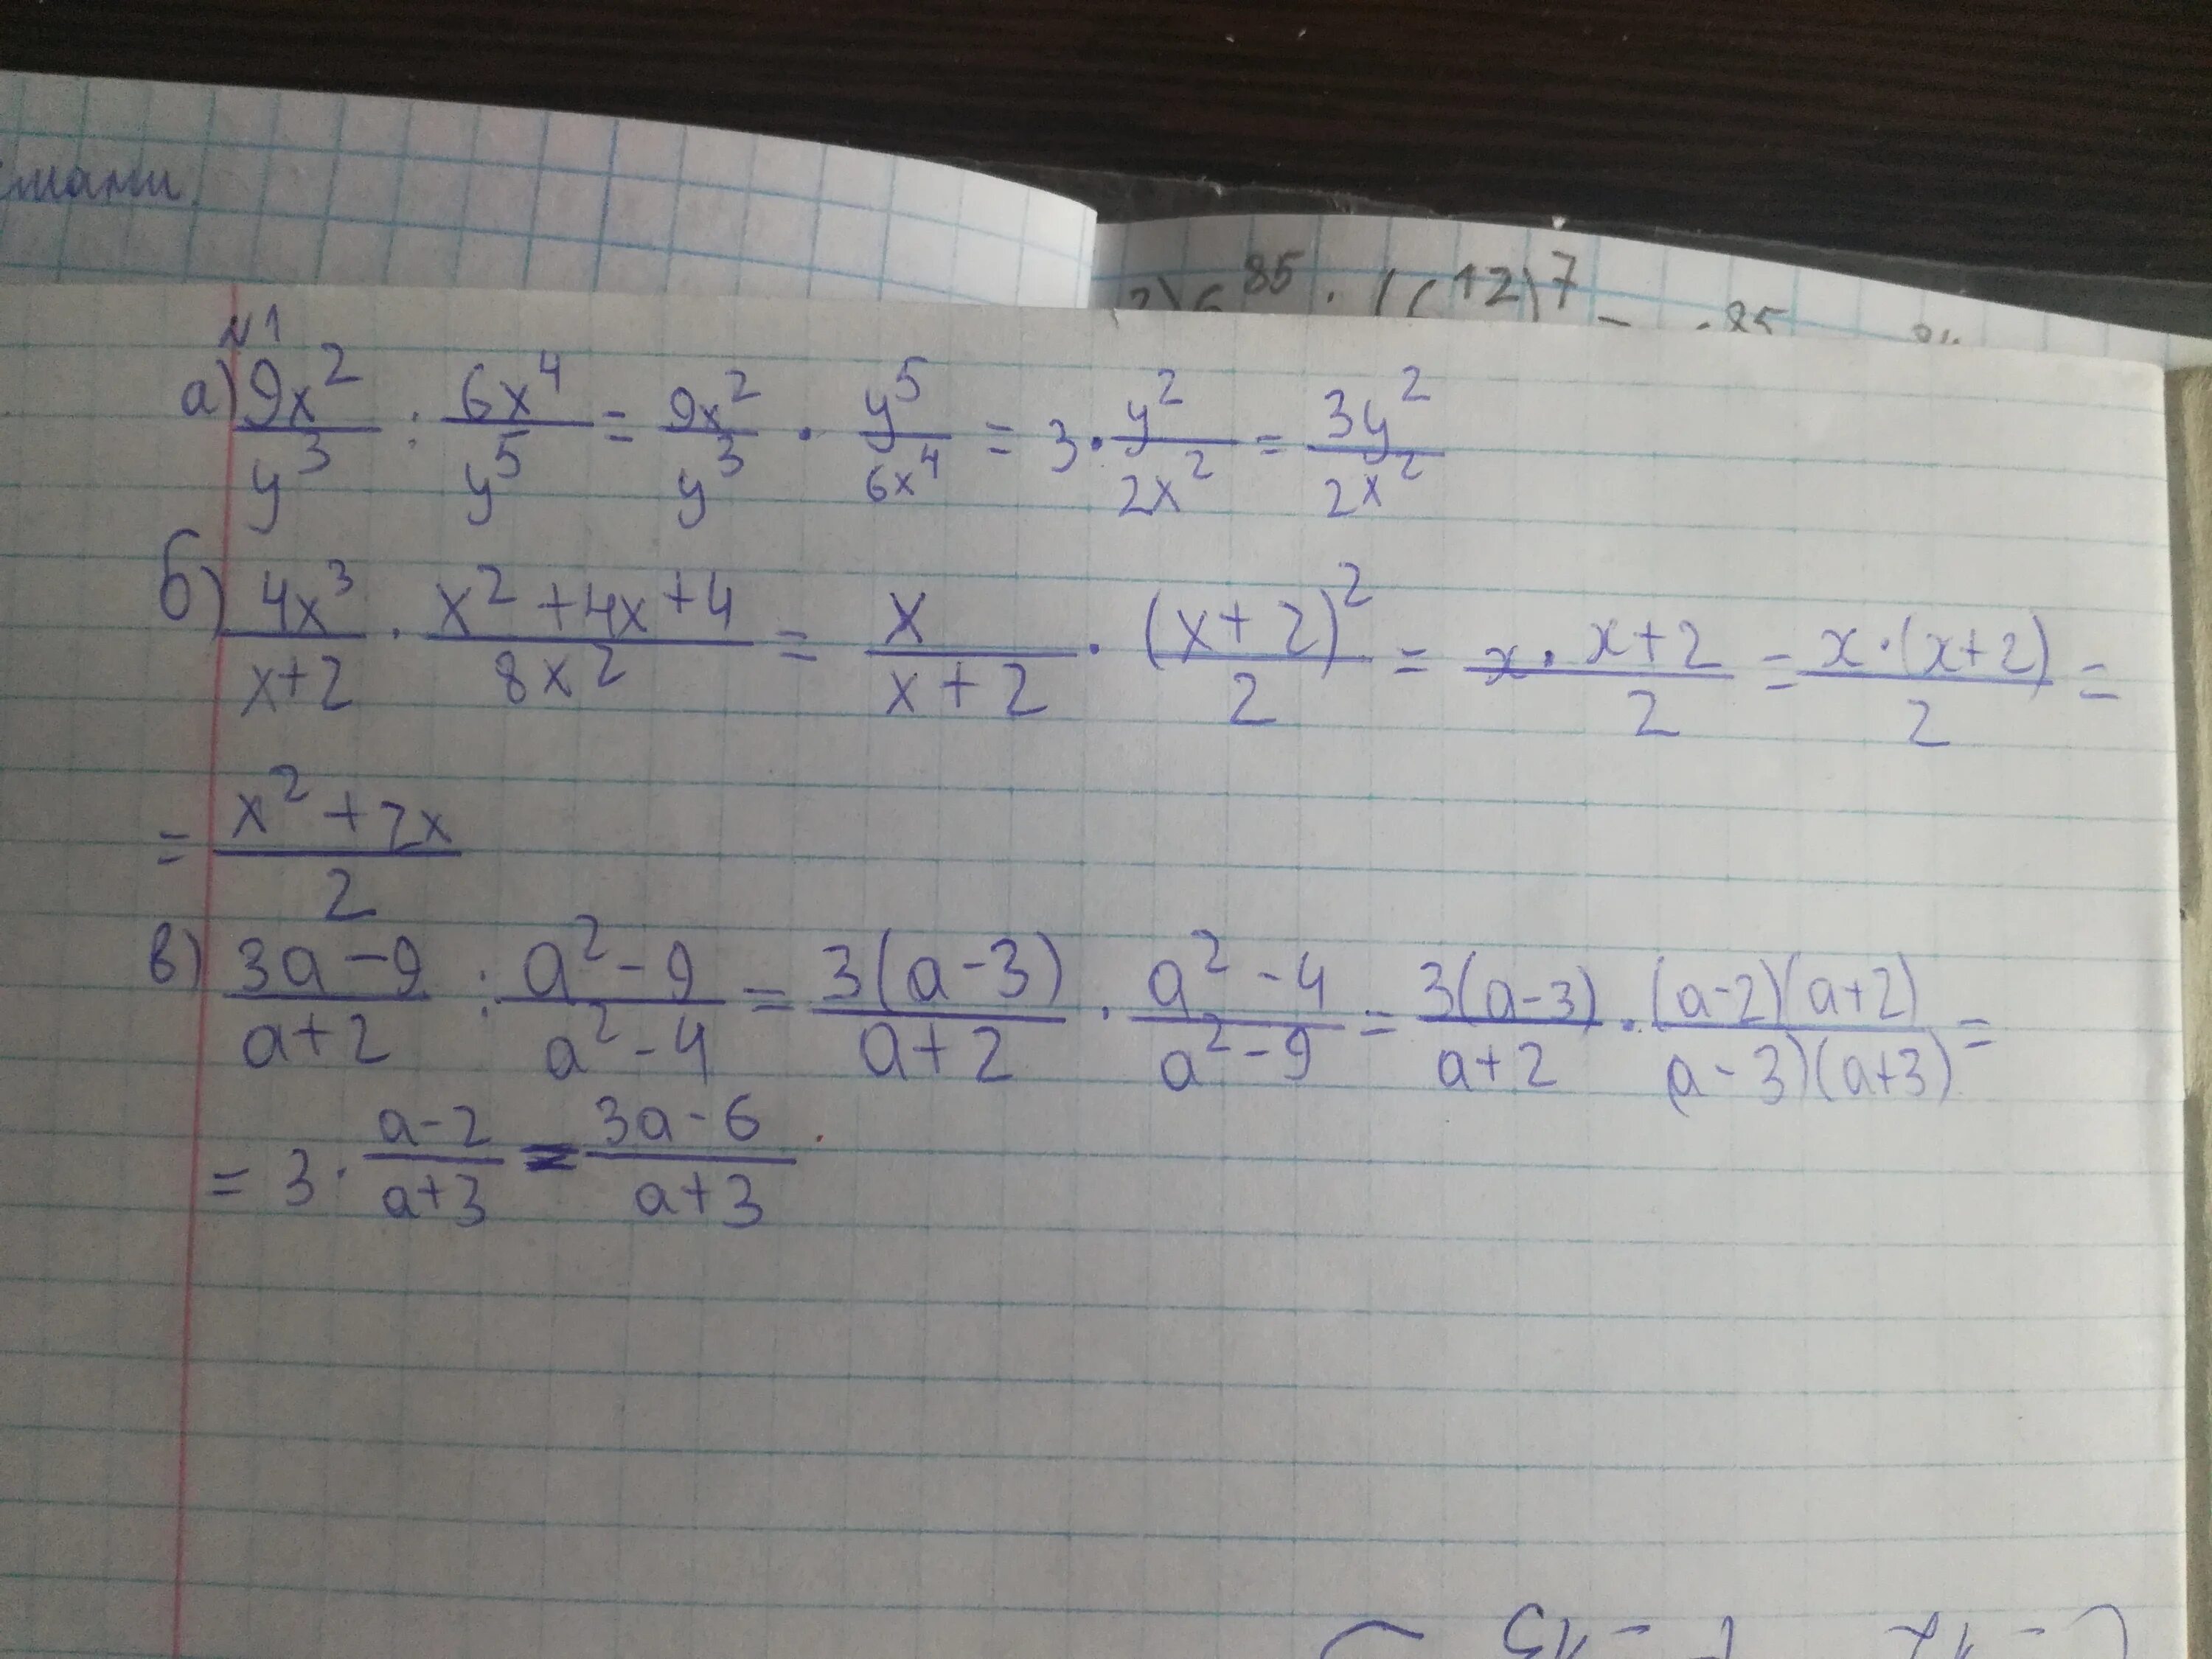 85 · ( 12)7
N1
а) 9x²/y³ : 6x⁴/y⁵ = 9x²/y³ · y⁵/6x⁴ = 3 · y²/2x² = 3y²/2x²
б) 4x³/x+2 · x²+4x+4/8x² = x/x+2 · (x+2)²/2 = x · x+2/2 = x·(x+2)/2 =
= x²+2x/2
в) 3a-9/a+2 : a²-9/a²-4 = 3(a-3)/a+2 · a²-4/a²-9 = 3(a-3)/a+2 · (a-2)(a+2)/(a-3)(a+3) =
= 3 · a-2/a+3 = 3a-6/a+3